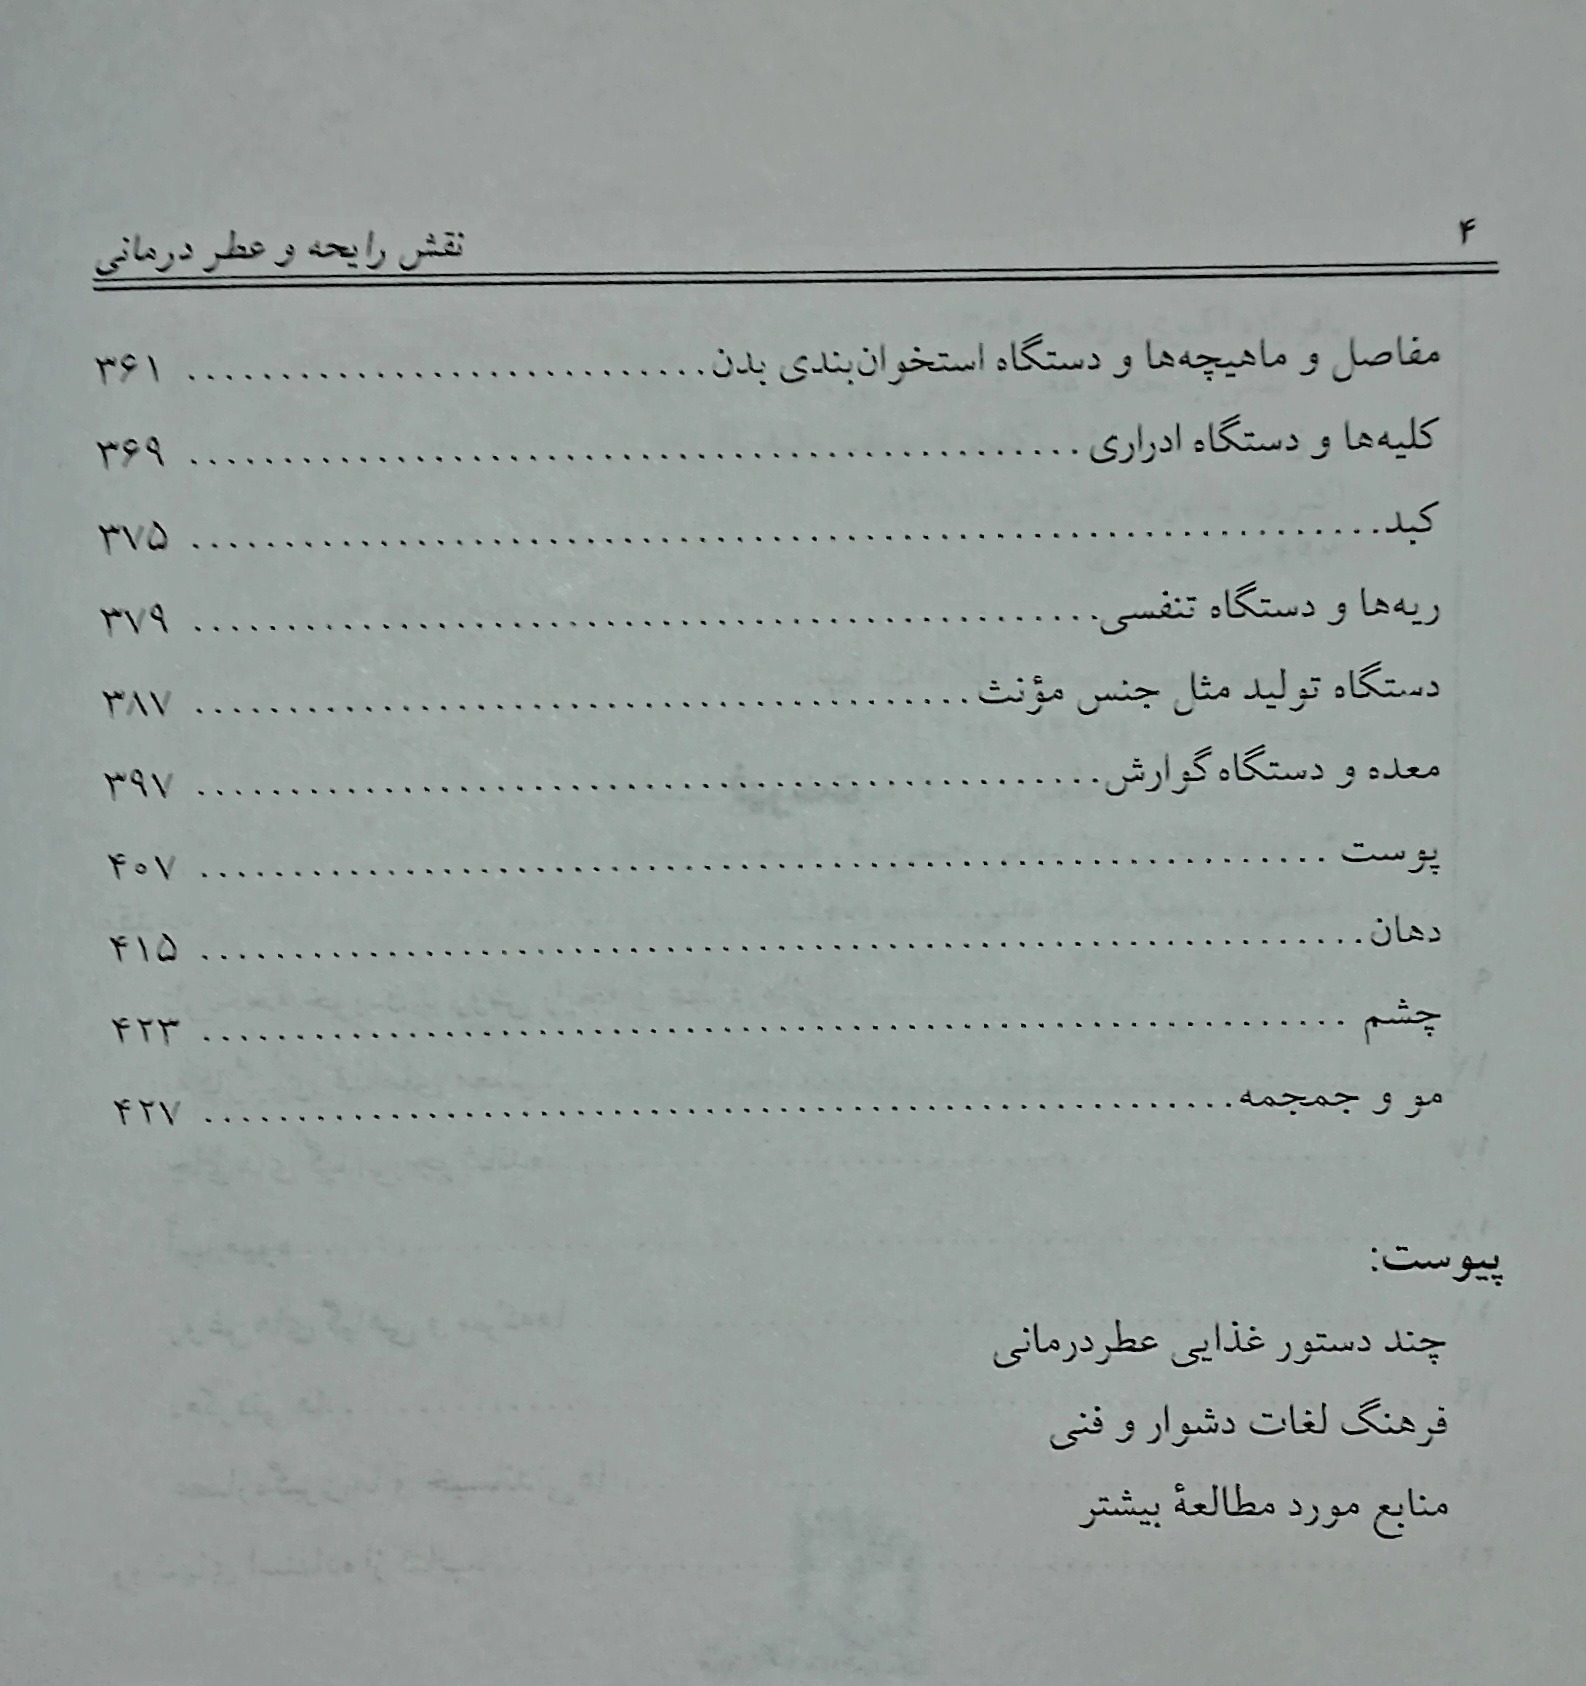 ۴
نقش رایحه و عطر درمانی
مفاصل و ماهیچه‌ها و دستگاه استخوان‌بندی بدن ............................ ۳۶۱
کلیه‌ها و دستگاه ادراری ................................................ ۳۶۹
کبد ................................................................ ۳۷۵
ریه‌ها و دستگاه تنفسی ................................................. ۳۷۹
دستگاه تولید مثل جنس مؤنث .......................................... ۳۸۷
معده و دستگاه گوارش ................................................. ۳۹۷
پوست ............................................................. ۴۰۷
دهان ............................................................... ۴۱۵
چشم .............................................................. ۴۲۳
مو و جمجمه ........................................................ ۴۲۷
پیوست:
چند دستور غذایی عطردرمانی
فرهنگ لغات دشوار و فنی
منابع مورد مطالعهٔ بیشتر